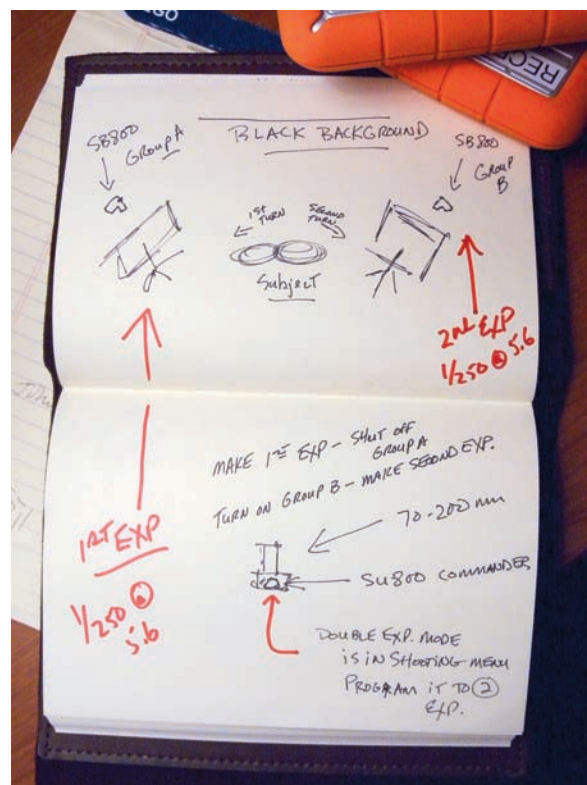 BLACK BACKGROUND
SB800
GROUP A
SB800
GROUP
B
1ST
TURN
SECOND
TURN
Subject
2ND EXP
1/250 @ 5.6
MAKE 1ST EXP - SHUT OFF
GROUP A
TURN ON GROUP B - MAKE SECOND EXP.
70-200 mm
SU800 COMMANDER
1ST EXP
1/250 @
5.6
DOUBLE EXP. MODE
IS IN SHOOTING MENU
PROGRAM IT TO 2
EXP.